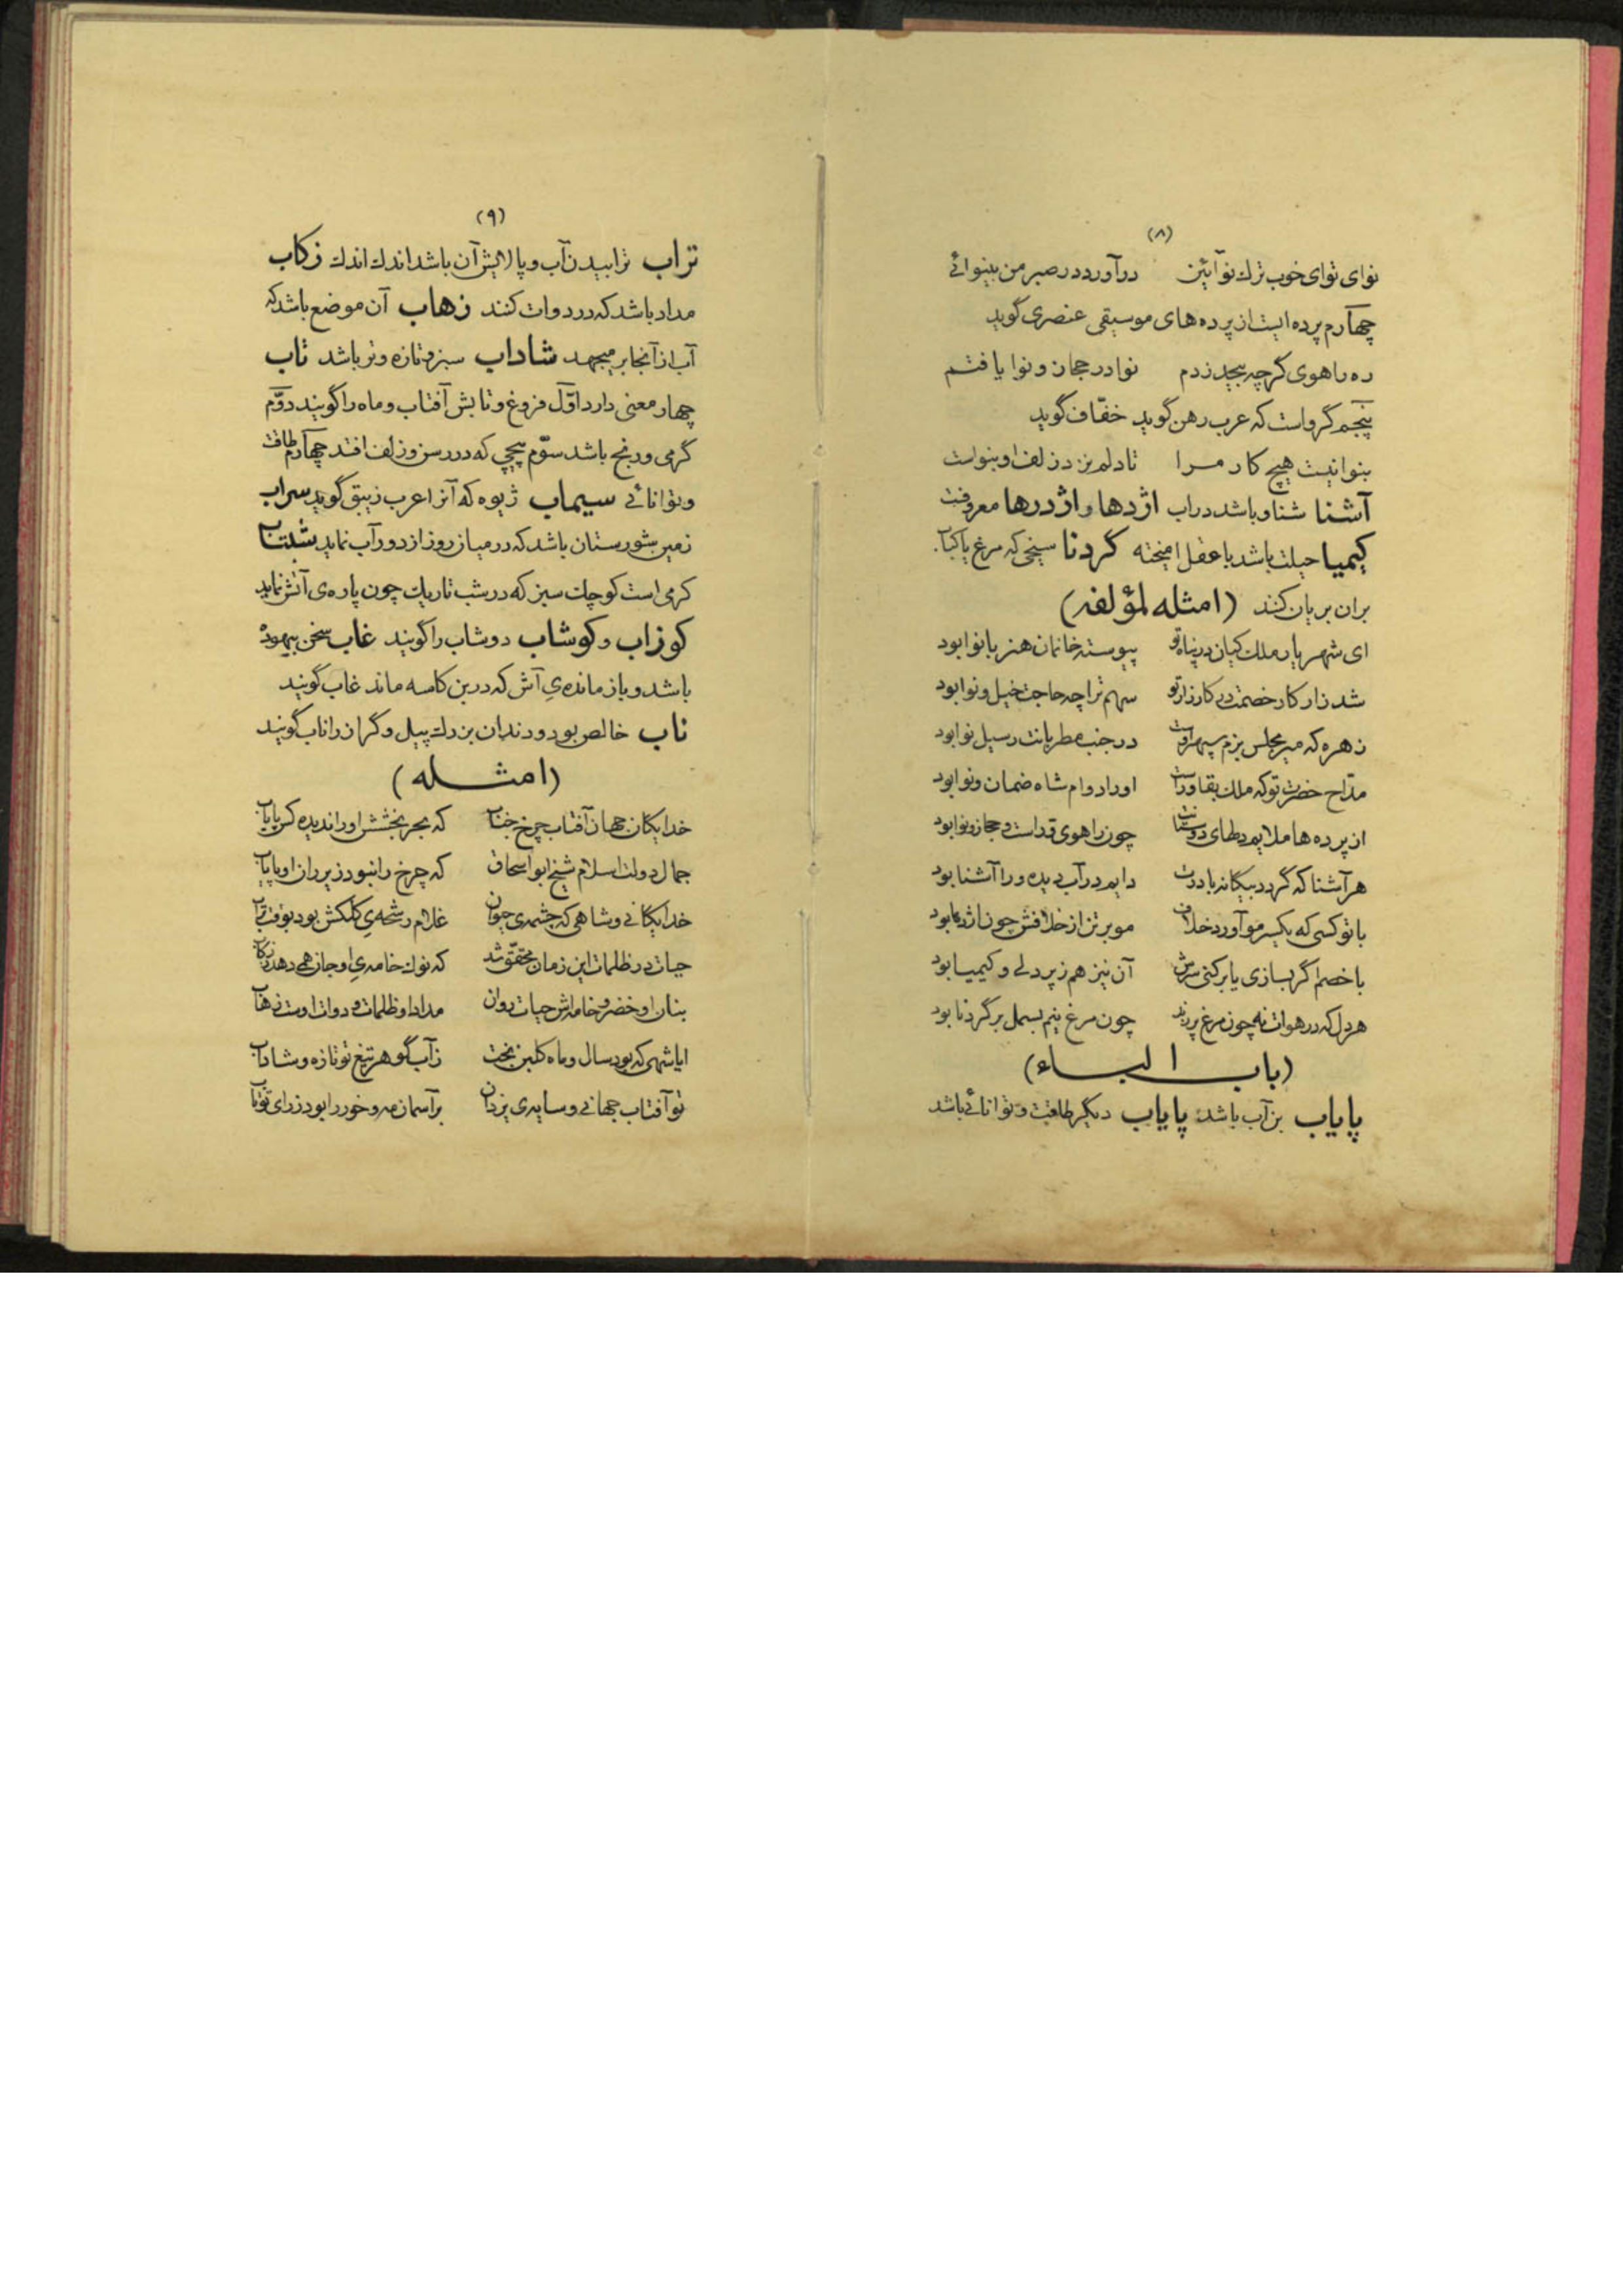 (۸)
نوای توای خوب ترک نوآئین درآورد در صبر من بینوائی
چهارم پرده ایست از پرده های موسیقی عنصری گوید
ره راهوی گرچه بیحد زدم نوا در حجاز و نوا یافتم
پنجم گرو است که عرب رهن گوید خفّاف گوید
بنوا نیست هیچ کار مرا تا دلم نزد زلف او بنواست
آشنا شناو باشد در اب اژدها و اژدرها معروفست
کیمیا حیلت باشد با عقل امیخته گردنا سیخی که مرغ یا کباب
بران بریان کنند (امثله لمؤلفه)
ای شهریار ملک کیان در پناه تو پیوسته خانمان هنر با نوا بود
شد زار کار خصمت در کارزار تو سهم ترا چه حاجت خیل و نوا بود
زهره که میر مجلس بزم سپهر اوست در جنب مطربانت رسیل نوا بود
مدّاح حضرت تو که ملک بقا وراست او را دوام شاه ضمان و نوا بود
از پرده ها ملایم چون راهوی و راست و حجاز و نوا بود
هر آشنا که گردد بیگانه با درت دایم در آب دیده ورا آشنا بود
با تو کسی که یکسر مو آورد خلاف مو بر تن از خلافش چون اژدها بود
با خصم اگر بسازی یا برکنی سرش آن نیز هم ز پر دلی و کیمیا بود
هر دل که در هوات نه چون مرغ پر زند چون مرغ نیم بسمل بر گردنا بود
(باب الباء)
پایاب بن آب باشد پایاب دیگر طاقت و توانائی باشد
(۹)
تراب ترابیدن آب و پالایش آن باشد اندک اندک زکاب
مداد باشد که در دوات کنند زهاب آن موضع باشد که
آب از آنجا بر میجهد شاداب سبز و تازه و تر باشد تاب
چهار معنی دارد اوّل فروغ و تابش آفتاب و ماه را گویند دوّم
گرمی و رنج باشد سوّم پیچی که در رسن و زلف افتد چهارم طاقت
و توانائی سیماب ژیوه که آنرا عرب زیبق گوید سراب
زمین شورستان باشد که در میان روز از دور آب نماید شبتاب
کرمی است کوچک سبز که در شب تاریک چون پاره‌ی آتش نماید
کوزاب و کوشاب دوشاب را گویند غاب سخن بیهوده
باشد و باز مانده‌یِ آش که در بن کاسه ماند غاب گویند
ناب خالص بود و دندان بزرک پیل و گراز را ناب گویند
(امثله)
خدایگان جهان آفتاب چرخ جناب که بحر بخشش او را ندیده کس پایاب
جمال دولت اسلام شیخ ابو اسحاق که چرخ را نبود زیر ران او پایاب
خدایگانی و شاهی که چشمه‌ی حیوان غلام رشحه‌یِ کلکش بود بوقت تراب
حیات در ظلمات این زمان محقّق شد که نوک خامه‌یِ او جان همی دهد ز زکاب
بنان او خضر و خامه‌اش حیات روان مداد او ظلمات و دوات اوست زهاب
ایا شهی که بود سال و ماه گلبن بخت ز آب گوهر تیغ تو تازه و شاداب
تو آفتاب جهانی و سایه‌ی یزدان بر آسمان مه و خور را بود ز رای تو تاب